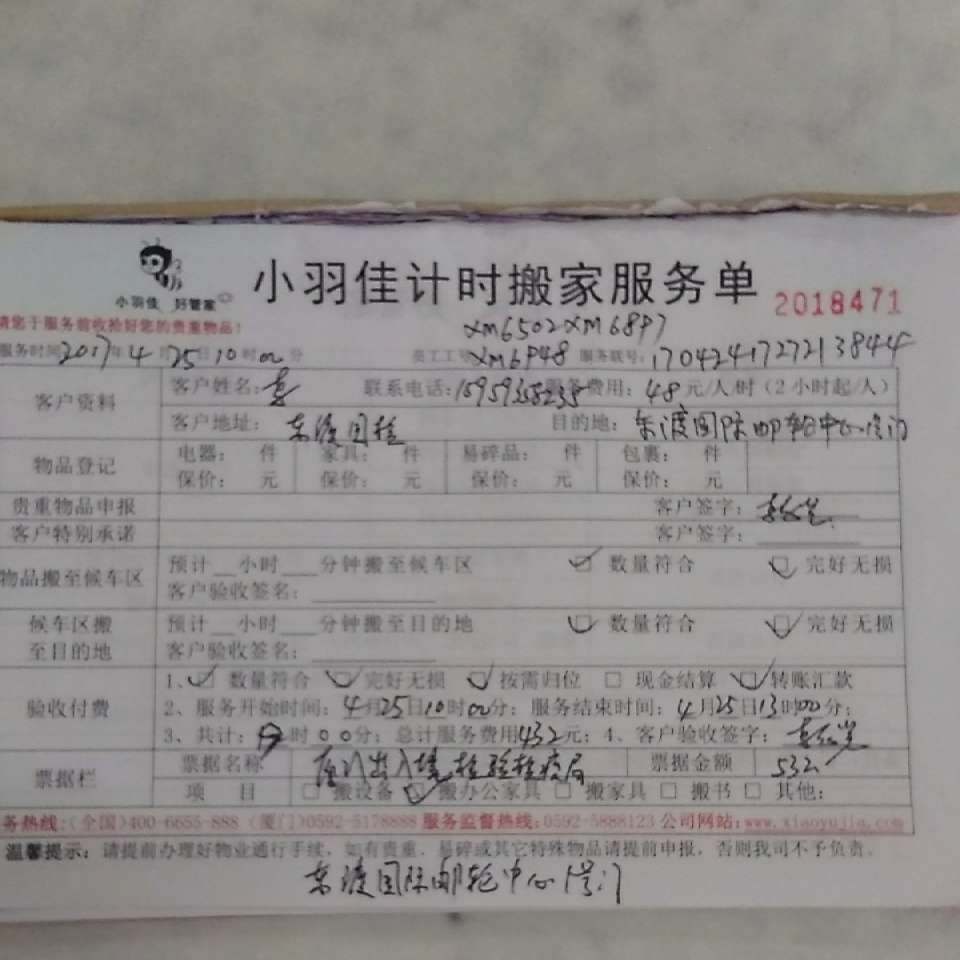 小羽佳 好管家
小羽佳计时搬家服务单 2018471
请您于服务前收拾好您的贵重物品!
XM6502 XM6897
服务时间2017年4月25日10时00分 员工工号XM6948 服务联号:1704241727213844
客户资料
客户姓名: 联系电话: 服务费用:48元/人/时(2小时起/人)
客户地址:东渡国检 目的地:东渡国际邮轮中心1号门
物品登记
电器: 件 家具: 件 易碎品: 件 包裹: 件
保价: 元 保价: 元 保价: 元 保价: 元
贵重物品申报 客户签字:
客户特别承诺 客户签字:
物品搬至候车区
预计__小时___分钟搬至候车区 ☑ 数量符合 ☑ 完好无损
客户验收签名:
候车区搬至目的地
预计__小时___分钟搬至目的地 ☑ 数量符合 ☑ 完好无损
客户验收签名:
验收付费
1、☑ 数量符合 ☑ 完好无损 ☑ 按需归位 □ 现金结算 ☑ 转账汇款
2、服务开始时间:4月25日10时00分;服务结束时间:4月25日13时00分;
3、共计:9时00分;总计服务费用432元;4、客户验收签字:
票据栏
票据名称 厦门出入境检验检疫局 票据金额 532
项 目 □ 搬设备 ☑ 搬办公家具 □ 搬家具 □ 搬书 □ 其他:
务热线:(全国)400-6655-888 (厦门)0592-5178888 服务监督热线:0592-5888123 公司网站:www.xiaoyujia.com
温馨提示:请提前办理好物业通行手续,如有贵重、易碎或其它特殊物品请提前申报,否则我司不予负责。
东渡国际邮轮中心1号门